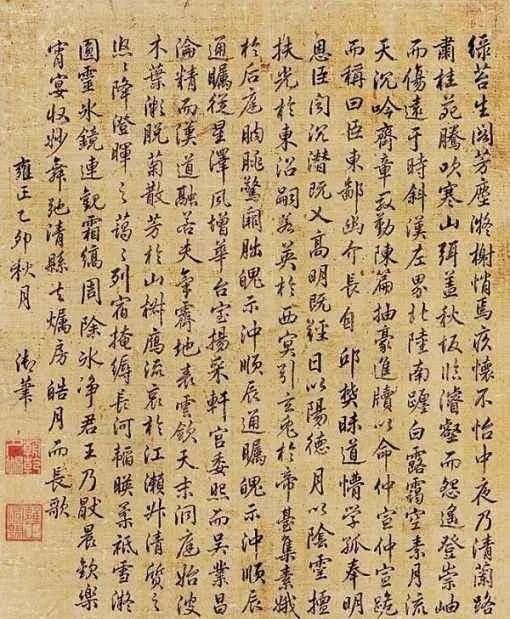 綠苔生閣芳塵凝榭悄焉疚懷不怡中夜乃清蘭路
肅桂苑騰吹寒山弭蓋秋坂臨濬壑而怨遙登崇岫
而傷遠于時斜漢左界北陸南躔白露靄空素月流
天沉吟齊章殷勤陳篇抽豪進牘以命仲宣仲宣跪
而稱曰臣東鄙幽介長自邱樊昧道懵學孤奉明
恩臣聞沉潛既乂高明既經日以陽德月以陰靈擅
扶光於東沼嗣若英於西冥引玄兔於帝臺集素娥
於后庭朒朓警闕朏魄示沖順辰通矚魄示沖順辰
通矚從星澤風增華台室揚采軒宮委照而吳業昌
淪精而漢道融若夫氣霽地表雲斂天末洞庭始波
木葉漸脫菊散芳於山樹鴈流哀於江瀨升清質之
悠々降澄暉之藹々列宿掩縟長河韜映柔祇雪凝
圓靈水鏡連觀霜縞周除冰淨君王乃厭晨歡樂
宵宴收妙舞弛清縣去燭房皓月而長歌
雍正乙卯秋月 御筆